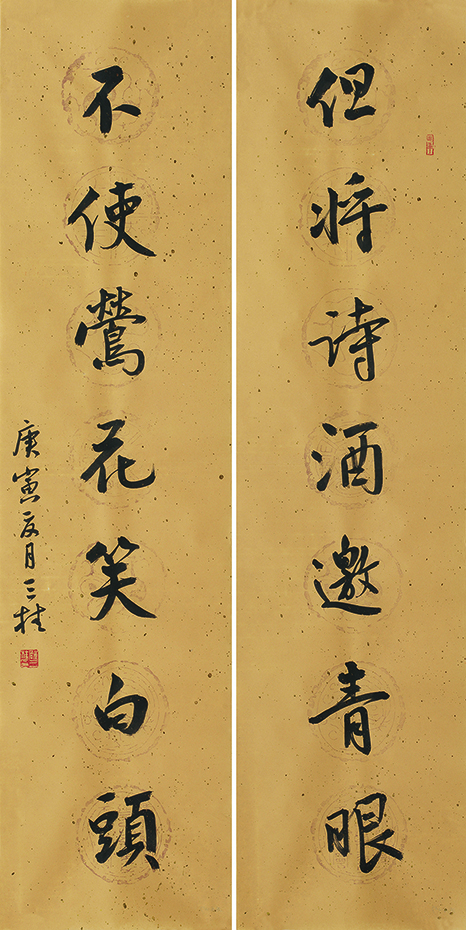 但将诗酒邀青眼
不使鶯花笑白頭
庚寅夏月三